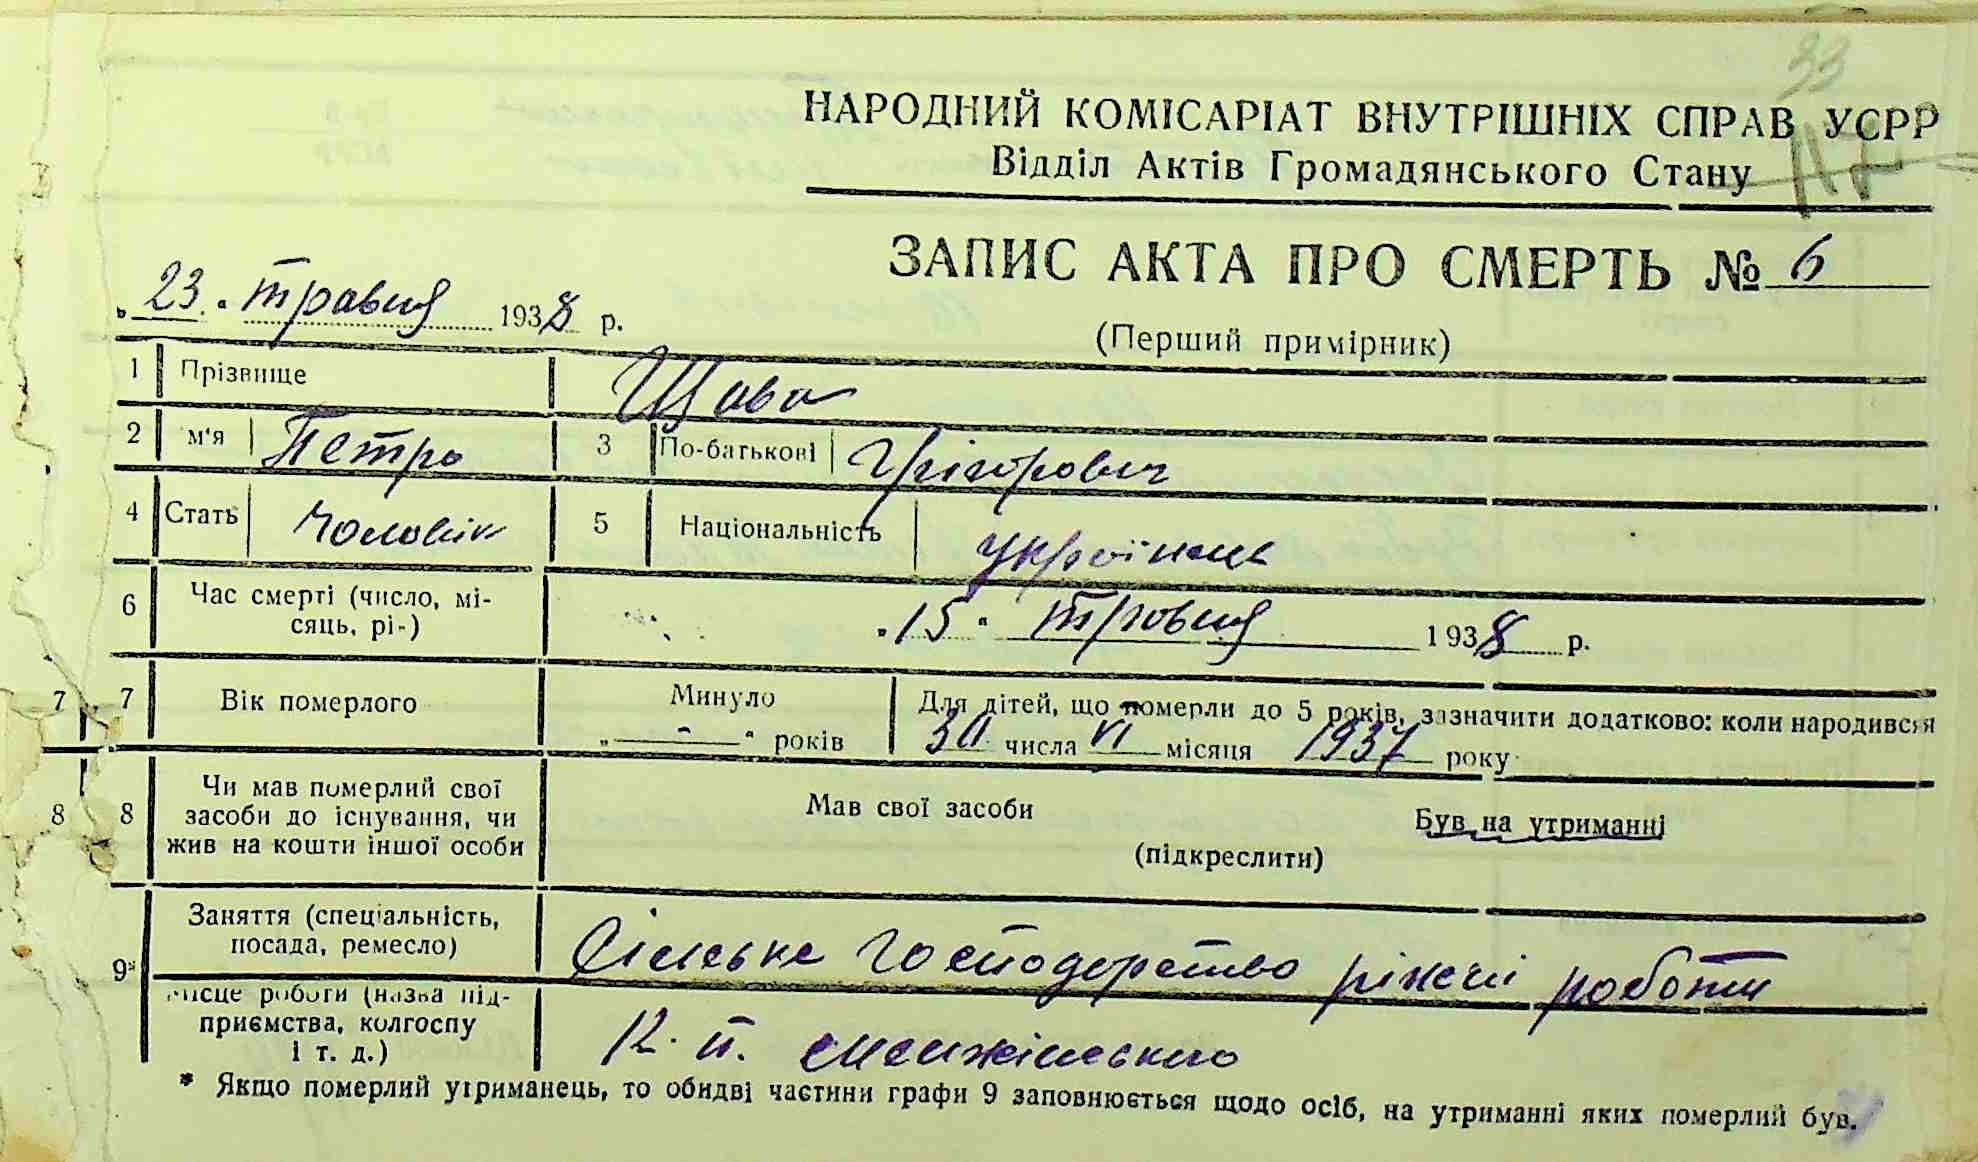 33
НАРОДНИЙ КОМІСАРІАТ ВНУТРІШНІХ СПРАВ УСРР
Відділ Актів Громадянського Стану
117
ЗАПИС АКТА ПРО СМЕРТЬ № 6
„23“ травня 1938 р.
(Перший примірник)
1 Прізвище Щава
2 м'я Петро 3 По-батькові Грігорович
4 Стать чоловік 5 Національність українець
6 Час смерті (число, мі-
сяць, рі-) „15“ травня 1938 р.
7 7 Вік померлого Минуло Для дітей, що померли до 5 років, зазначити додатково: коли народився
„ - “ років 30 числа VI місяця 1937 року
8 8 Чи мав померлий свої
засоби до існування, чи
жив на кошти іншої особи
Мав свої засоби Був на утриманні
(підкреслити)
9* Заняття (спеціальність,
посада, ремесло) Сільське господарство ріжні роботи
місце роботи (назва під-
приємства, колгоспу
і т. д.) к. п. Менжінського
* Якщо померлий утриманець, то обидві частини графи 9 заповнюється щодо осіб, на утриманні яких померлий був.